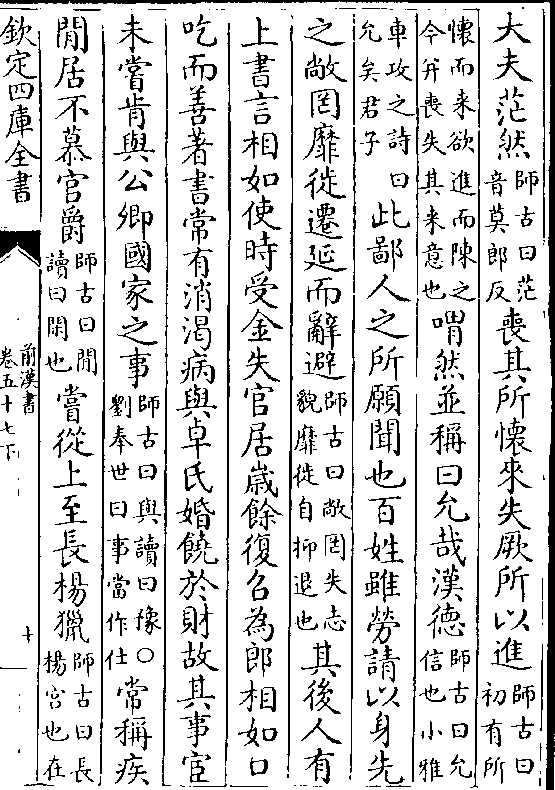 大夫茫然師古曰茫音莫郎反喪其所懷來失厥所以進師古曰初有所
懷而来欲進而陳之今并喪失其来意也喟然並稱曰允哉漢德師古曰允信也小雅
車攻之詩曰允矣君子此鄙人之所願聞也百姓雖勞請以身先
之敞罔靡徙遷延而辭避師古曰敞罔失志貌靡徙自抑退也其後人有
上書言相如使時受金失官居嵗餘復召為郎相如口
吃而善著書常有消渴病與卓氏婚饒於財故其事宦
未嘗肯與公卿國家之事師古曰與讀曰豫○劉奉世曰事當作仕常稱疾
閒居不慕官爵師古曰閒讀曰閑也嘗從上至長楊獵師古曰長楊宫也在
欽定四庫全書
前漢書
卷五十七下
十